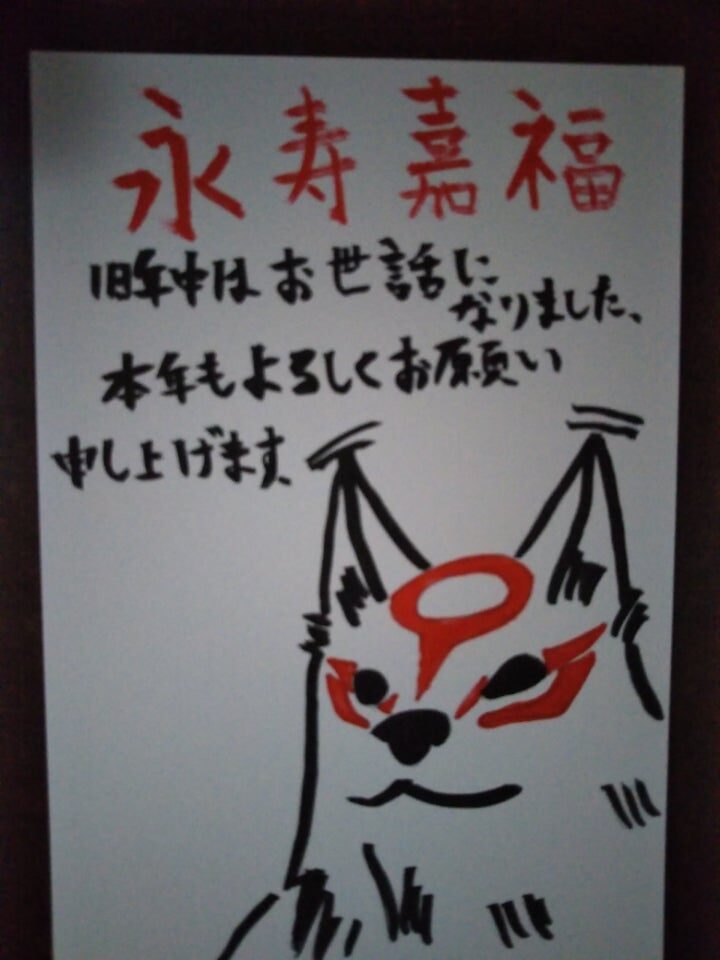 永寿嘉福
旧年中はお世話に
なりました、
本年もよろしくお願い
申し上げます。